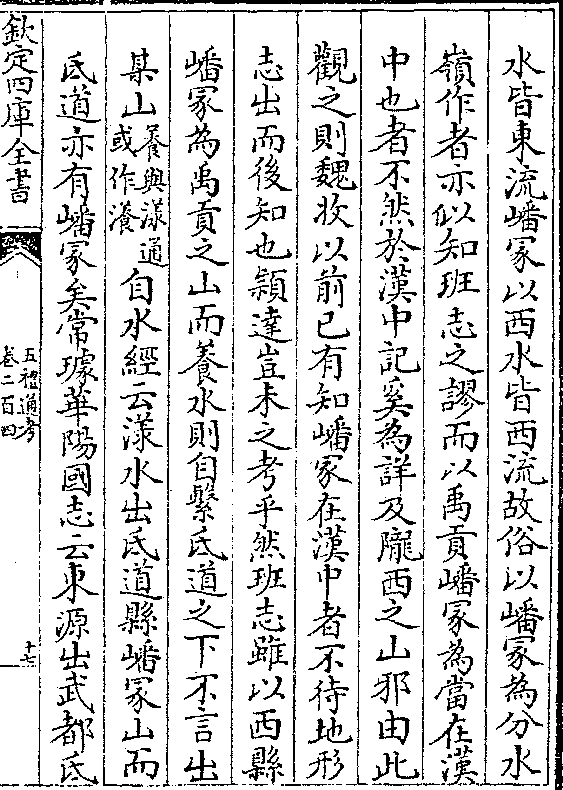 水皆東流嶓冢以西水皆西流故俗以嶓冢為分水
嶺作者亦似知班志之謬而以禹貢嶓冢為當在漢
中也者不然於漢中記奚為詳及隴西之山邪由此
觀之則魏收以前已有知嶓冢在漢中者不待地形
志出而後知也穎達豈未之考乎然班志雖以西縣
嶓冢為禹貢之山而養水則自繫氐道之下不言出
某山養與漾通或作瀁自水經云漾水出氐道縣嶓冢山而
氐道亦有嶓冢矣常璩華陽國志云東源出武都氐
欽定四庫全書
五禮通考
卷二百四
十七